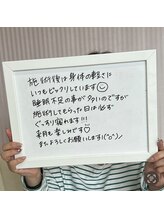 施術後は身体の軽さに
いつもビックリしています☺
睡眠不足の事が多いのですが
施術してもらった日は必ず
ぐっすり寝れます!!!
来月も楽しみです♡
またよろしくお願いします(^o^)丿